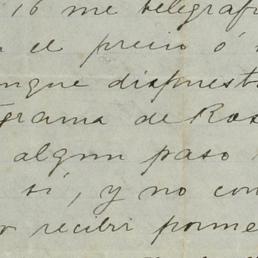 16 me telegrafi
el precio ó
nque dispuesto
grama de Ros
algun paso
sí, y no con
recibi porme